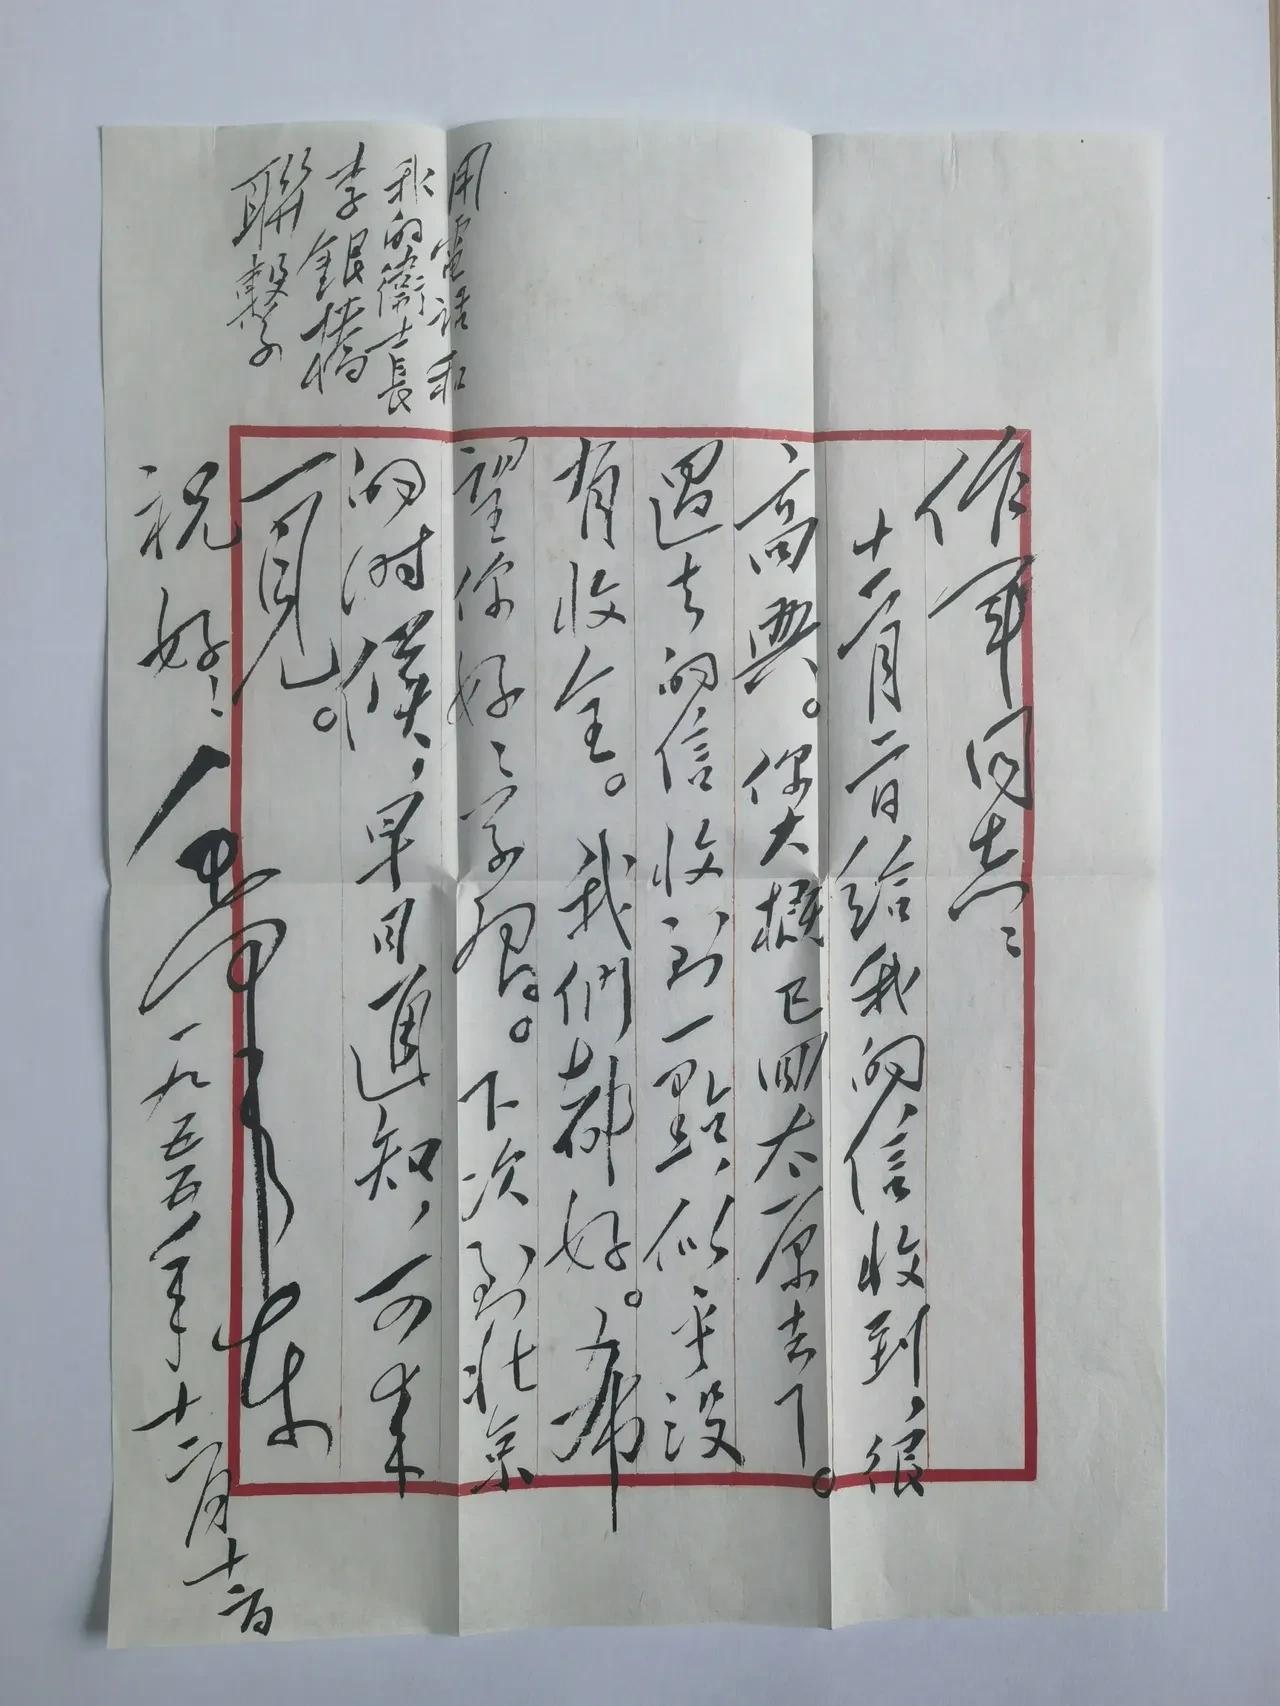 作军同志：
十一月二日给我的信收到，很
高興。你大概已回太原去了。
過去的信收到一點，似乎没
有收全。我們都好。希
望你好：学習。下次到北京
的时候，早日通知，可来
一見。
祝好：
毛澤东
一九五五年十二月十二日
用電話和
我的衛士長
李銀橋
聯繫